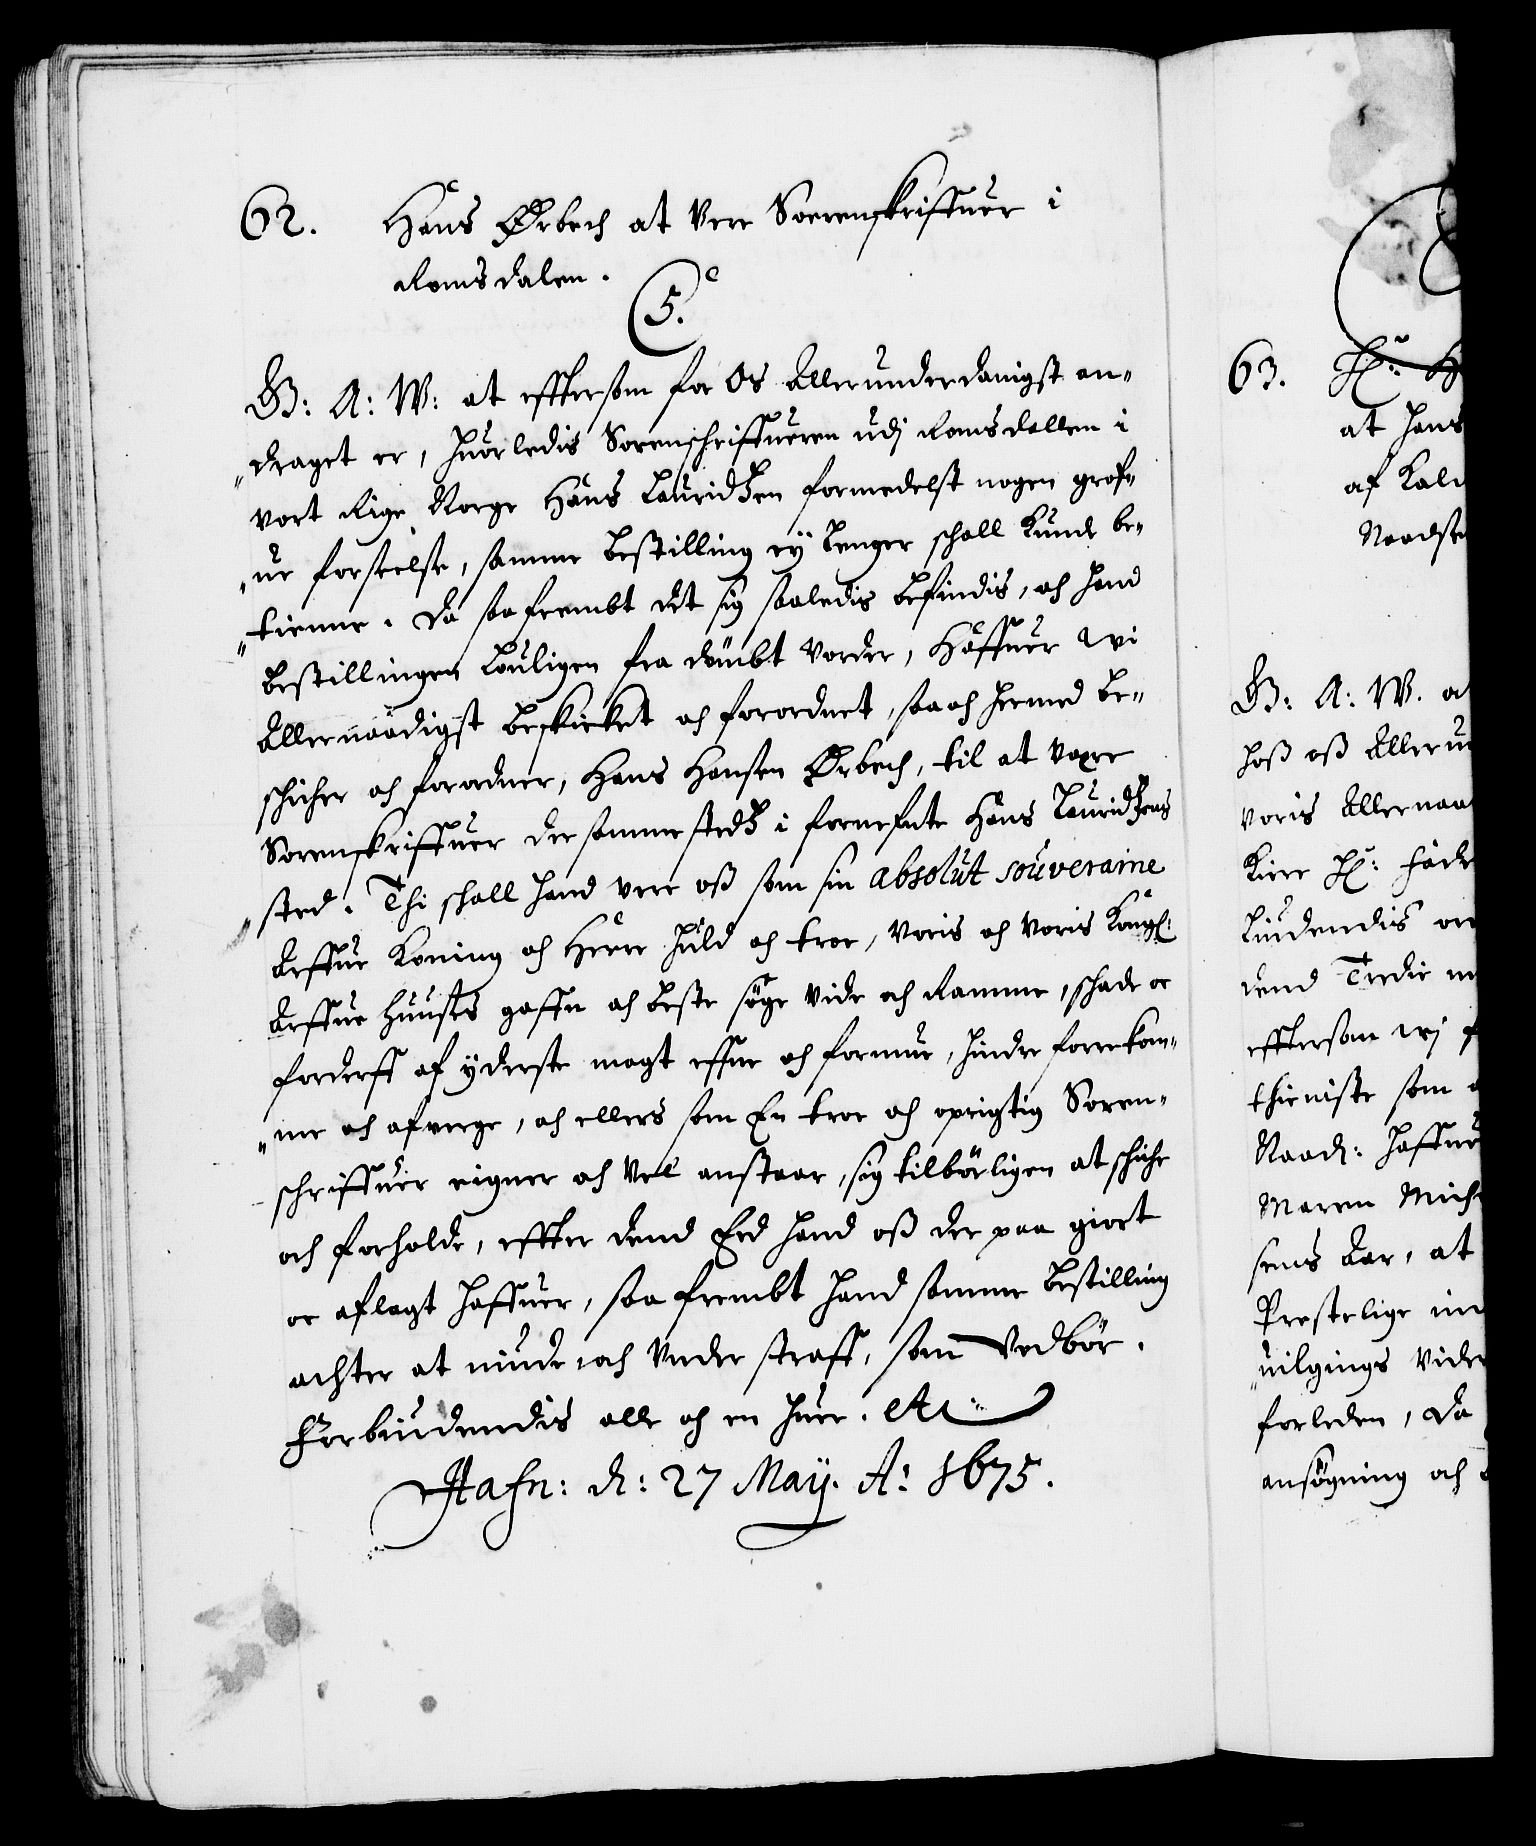 62. Hans Ørbech at vere Sorenskriffuer i
Romsdalen.
C5.
G: A: W: at effterson for Os Allerunderdanigst an-
draget er, huorledis Sorenschriffueren udj Romsdallen i
vort Rige Norge Hans Lauridtzen formedelst nogen grof-
ue forseelse, samme bestilling eÿ lenger schall kunde be-
tienne. Da saafrembt det sig saaledis befindis, och hand
bestillingen louligen fra dömbt vorder, Haffuer Wi
Allernaadigst beskicket och forordnet, saa och hermed be-
schicher och forordner, Hans Hansen Ørbech, til at være
Sorenskriffuer der sammestedtz i fornefnte Hans Lauridtzens
sted. Thi schall hand vere oß som sin absolut souveraine
Arffue Koning och Herre huld och troe, voris och voris Kongl:
Arffue Huuses gaffn och beste söge vide och Ramme, schade oc
forderff af ÿderste magt effue och formue, hindre forrekom-
me och afverge, och ellers som En troe och oprigtig Soren-
schriffuer eigner och vel anstaar, sig tilbörligen at schiche
och forholde, effter dend Eed hand oß der paa giort
oc aflagt haffuer, saa frembt hand samme bestilling
achter at niude, och under straff, som vedbör.
Forbiudendis alle och en huer. etc:
Hafn: d: 27 Maÿ. A: 1675.
63. Hr: H
at hans
af Kald
Naadse
G: A: W. at
hoß oß Alleru
voris Allernaa
Kiere Hr: Fade
liudendis om
dend Tredie
efftersom wj
thieniste som
Naad: haffue
Maren Mich
sens Aar, at
Prestelige
uilgings vide
forleden, Da
ansögning och